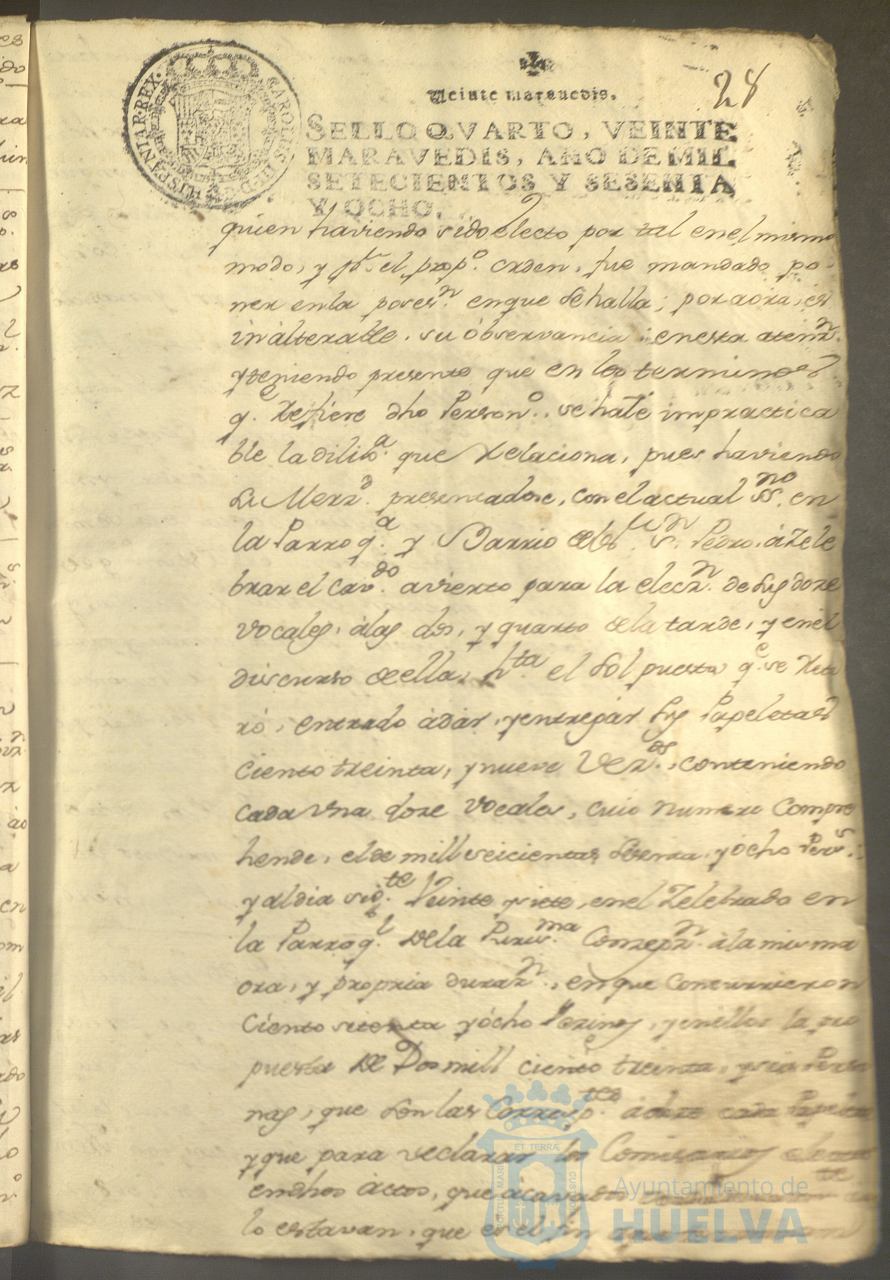 CAROLUS III D G HISPANIAR REX
28
Veinte maravedis.
SELLO QVARTO, VEINTE
MARAVEDIS, AÑO DE MIL
SETECIENTOS Y SESENTA
Y OCHO.
quien haviendo sido electo por tal en el mismo
modo, y pr. el propo. orden, fue mandado po-
ner en la posesn. en que se halla; por aora, es
inalterable su observancia; en esta atenzn.
y teniendo presente que en los terminos
qe. Refiere dho Persono. se hace impractica
ble la dilixa. que Relaciona, pues haviendo
su Merzd. presentadose, con el actual ssno. en
la Parroqa. y Barrio del Sr. Sn. Pedro, à Zele
brar el cavdo. avierto para la eleczn. de los doze
vocales, à las dos, y quarto de la tarde, y en el
discurso de ella, hta. el sol puesto qe. se Reti
rò, entrado à dar, y entregar sus Papeletas
ciento treinta, y nueve Vezos., conteniendo
cada una doze vocales, cuio numero Compre
hende, el de mill seicientas sesenta, y ócho Pers.
y al dia sigte. Veinte y siete, en el Zelebrado en
la Parroql. de la Purisma. Conzepzn. à la misma
ora, y propria durazn., en que concurrieron
Ciento setenta y ócho Vezinos, y en ellos la pro
puesta de Dos mill ciento treinta, y seis Perso
nas, que son las Correspotes. à doze cada Papeleta
y que para declarar los Comisarios electos
en dhos áctos, que acavados
lo estavan, que en el fin
ET TERRÆ
PORTUS MARIS
CUSTODIA
Ayuntamiento de
HUELVA